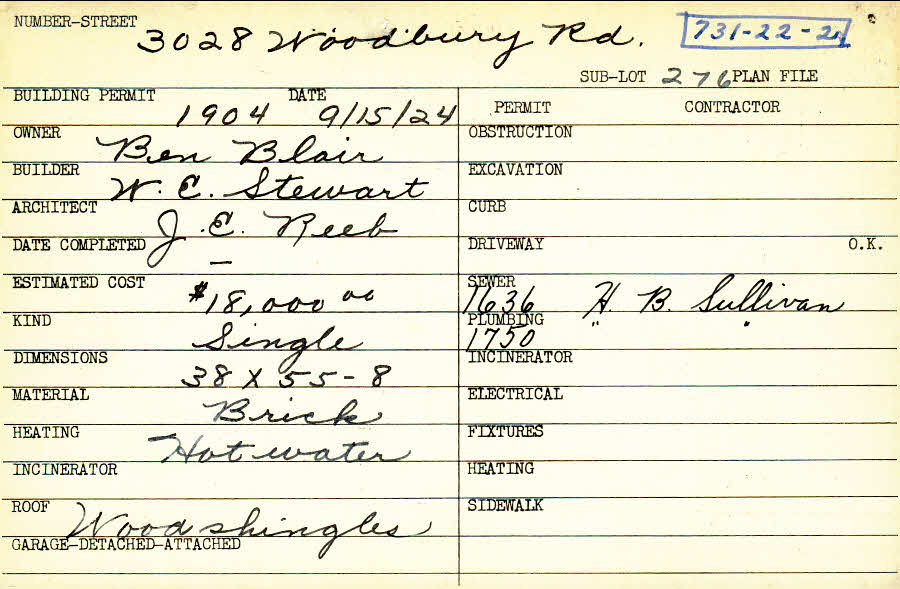 NUMBER-STREET
3028 Woodbury Rd. 731-22-21
SUB-LOT 276 PLAN FILE
BUILDING PERMIT 1904 DATE 9/15/24 PERMIT CONTRACTOR
OWNER Ben Blair OBSTRUCTION
BUILDER W. E. Stewart EXCAVATION
ARCHITECT J. E. Reeb CURB
DATE COMPLETED — DRIVEWAY O.K.
ESTIMATED COST $18,000 00 SEWER 1636 H. B. Sullivan
KIND Single PLUMBING 1750 " "
DIMENSIONS 38 X 55-8 INCINERATOR
MATERIAL Brick ELECTRICAL
HEATING Hot water FIXTURES
INCINERATOR HEATING
ROOF Wood shingles SIDEWALK
GARAGE-DETACHED-ATTACHED